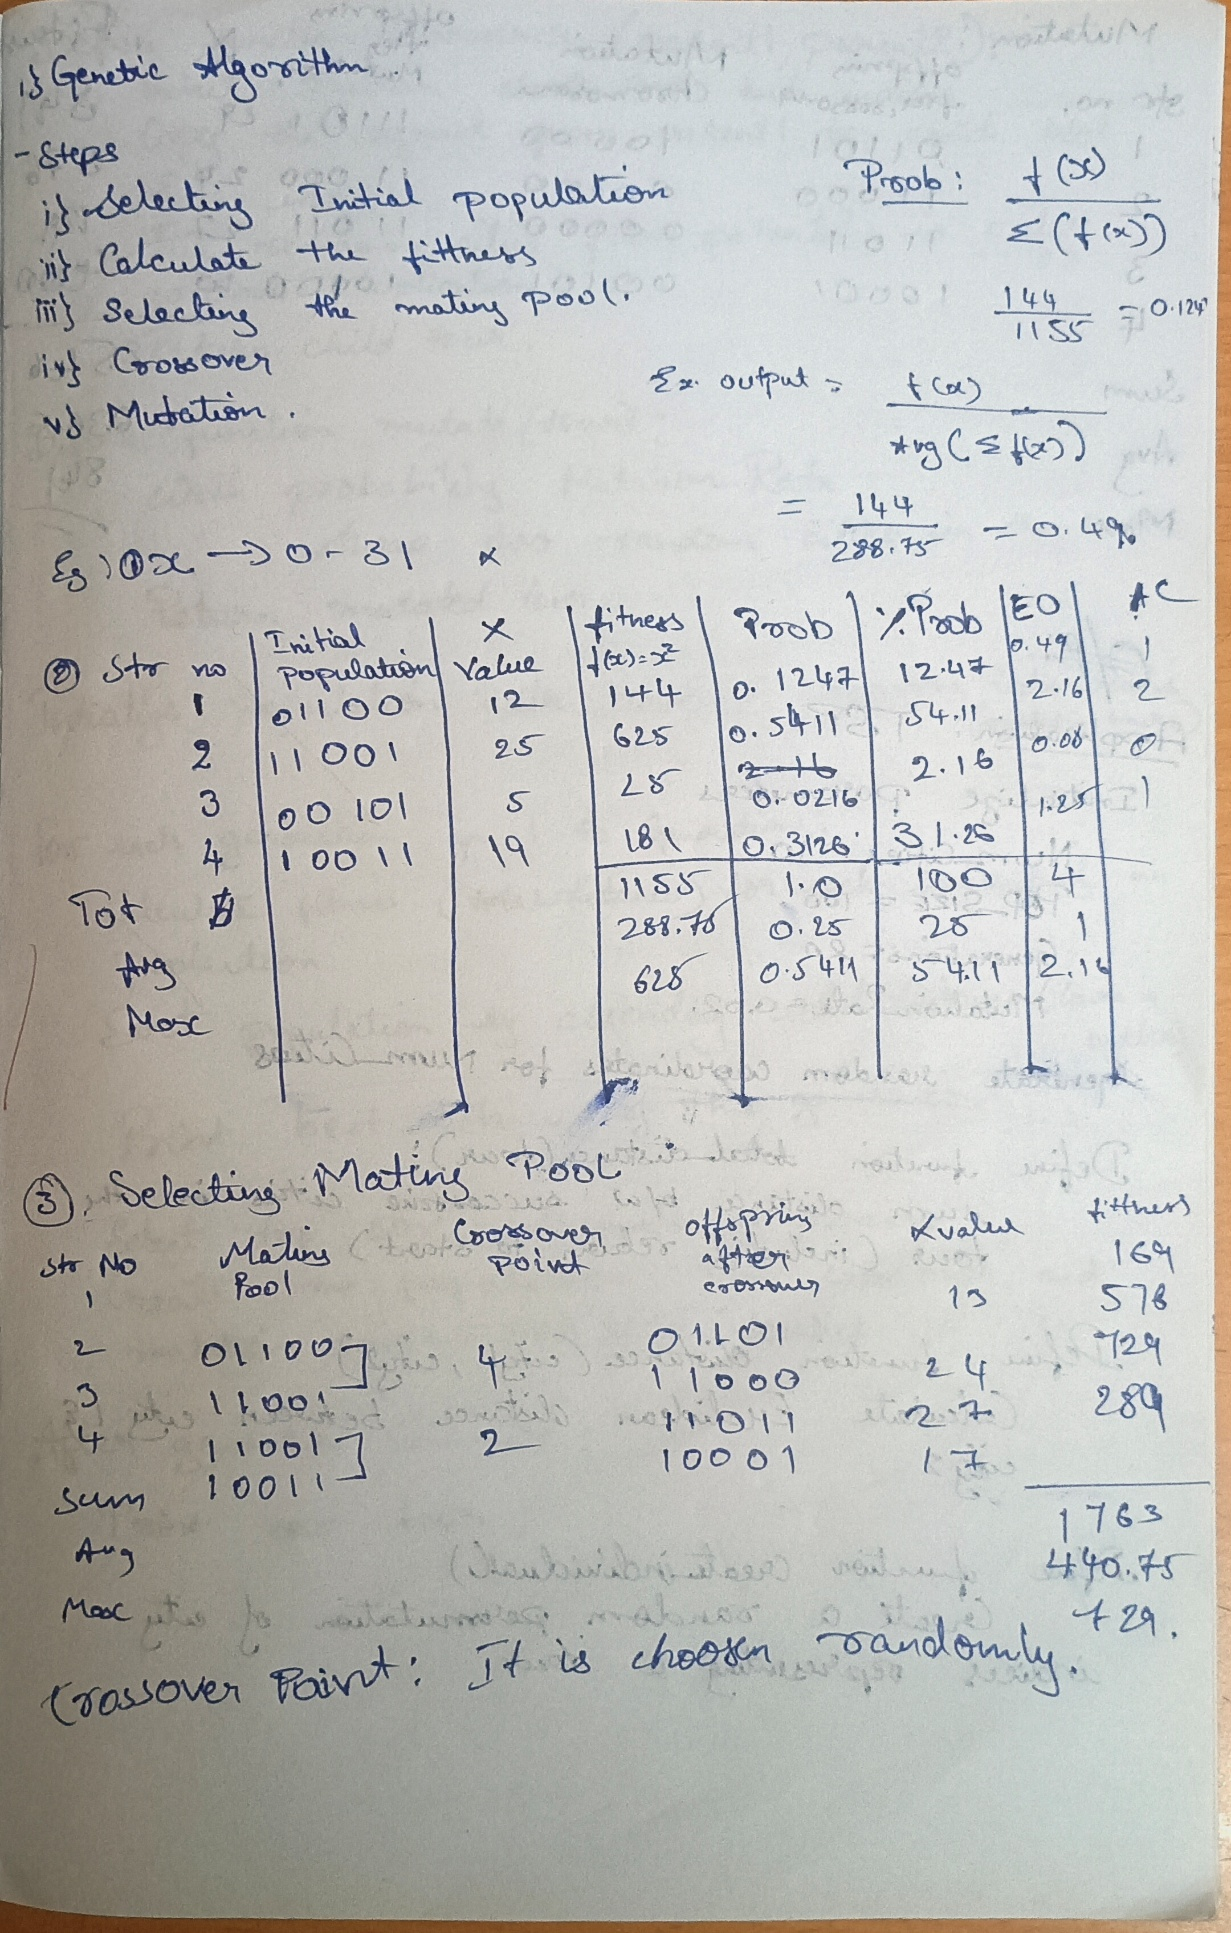 1} Genetic Algorithm.
- Steps
i} Selecting Initial population
ii} Calculate the fittness
iii} Selecting the mating pool.
iv} Crossover
v} Mutation.
Prob: f(x) / Σ(f(x))
144 / 1155 = 0.124
Ex. output = f(x) / Avg(Σf(x))
= 144 / 288.75 = 0.49
Eg) ① x → 0 - 31 x
② Str no | Initial population | X Value | fitness f(x)=x² | Prob | % Prob | EO | AC
1 | 01100 | 12 | 144 | 0.1247 | 12.47 | 0.49 | 1
2 | 11001 | 25 | 625 | 0.5411 | 54.11 | 2.16 | 2
3 | 00101 | 5 | 25 | 0.0216 | 2.16 | 0.08 | 0
4 | 10011 | 19 | 181 | 0.3126 | 31.26 | 1.25 | 1
Tot 1155 | 1.0 | 100 | 4
Avg 288.75 | 0.25 | 25 | 1
Max 625 | 0.5411 | 54.11 | 2.16
③ Selecting Mating Pool
Str No Mating Pool Crossover point offspring after crossover X value fittness
1 01100 4 01101 13 169
2 11001 11000 24 576
3 11001 2 11011 27 729
4 10011 10001 17 289
Sum 1763
Avg 440.75
Max 729.
Crossover Point: It is choosen randomly.